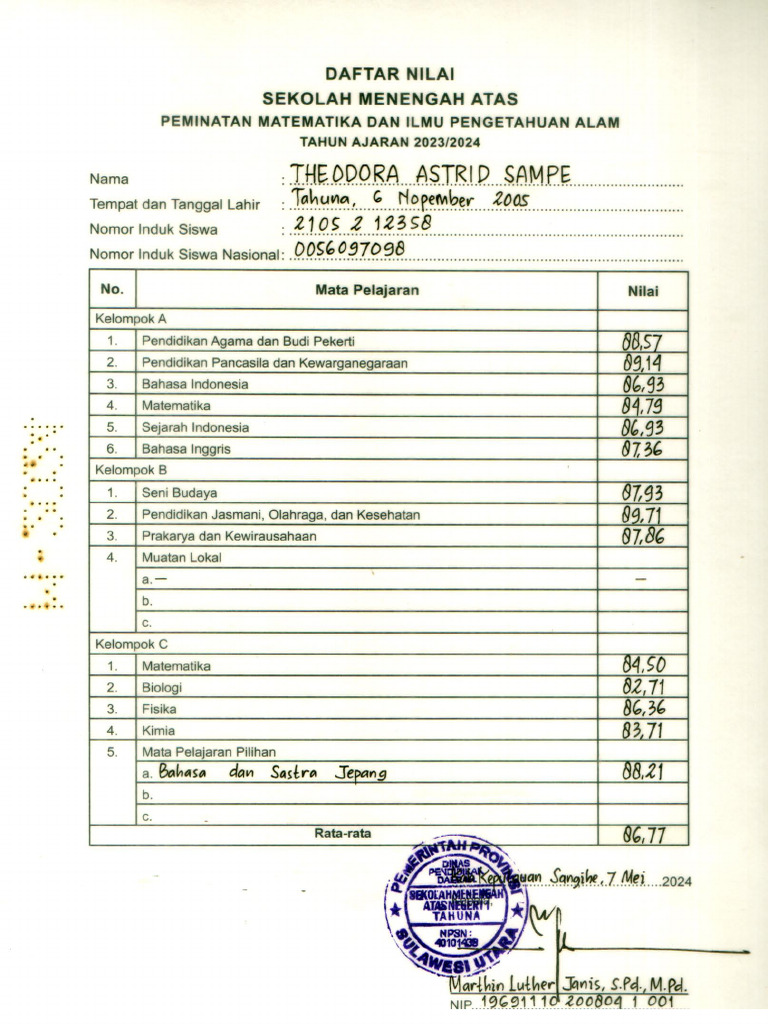 DAFTAR NILAI
SEKOLAH MENENGAH ATAS
PEMINATAN MATEMATIKA DAN ILMU PENGETAHUAN ALAM
TAHUN AJARAN 2023/2024
Nama : THEODORA ASTRID SAMPE
Tempat dan Tanggal Lahir : Tahuna, 6 Nopember 2005
Nomor Induk Siswa : 2105 2 12358
Nomor Induk Siswa Nasional : 0056097098
No. Mata Pelajaran Nilai
Kelompok A
1. Pendidikan Agama dan Budi Pekerti 88,57
2. Pendidikan Pancasila dan Kewarganegaraan 89,14
3. Bahasa Indonesia 86,93
4. Matematika 84,79
5. Sejarah Indonesia 86,93
6. Bahasa Inggris 87,36
Kelompok B
1. Seni Budaya 87,93
2. Pendidikan Jasmani, Olahraga, dan Kesehatan 89,71
3. Prakarya dan Kewirausahaan 87,86
4. Muatan Lokal
a. — —
b.
c.
Kelompok C
1. Matematika 84,50
2. Biologi 82,71
3. Fisika 86,36
4. Kimia 83,71
5. Mata Pelajaran Pilihan
a. Bahasa dan Sastra Jepang 88,21
b.
c.
Rata-rata 86,77
Sangihe, 7 Mei 2024
PEMERINTAH PROVINSI
DINAS
PENDIDIKAN
DAERAH
SEKOLAH MENENGAH
ATAS NEGERI 1
TAHUNA
NPSN :
40101438
SULAWESI UTARA
Marthin Luther Janis, S.Pd., M.Pd.
NIP. 19691110 200804 1 001